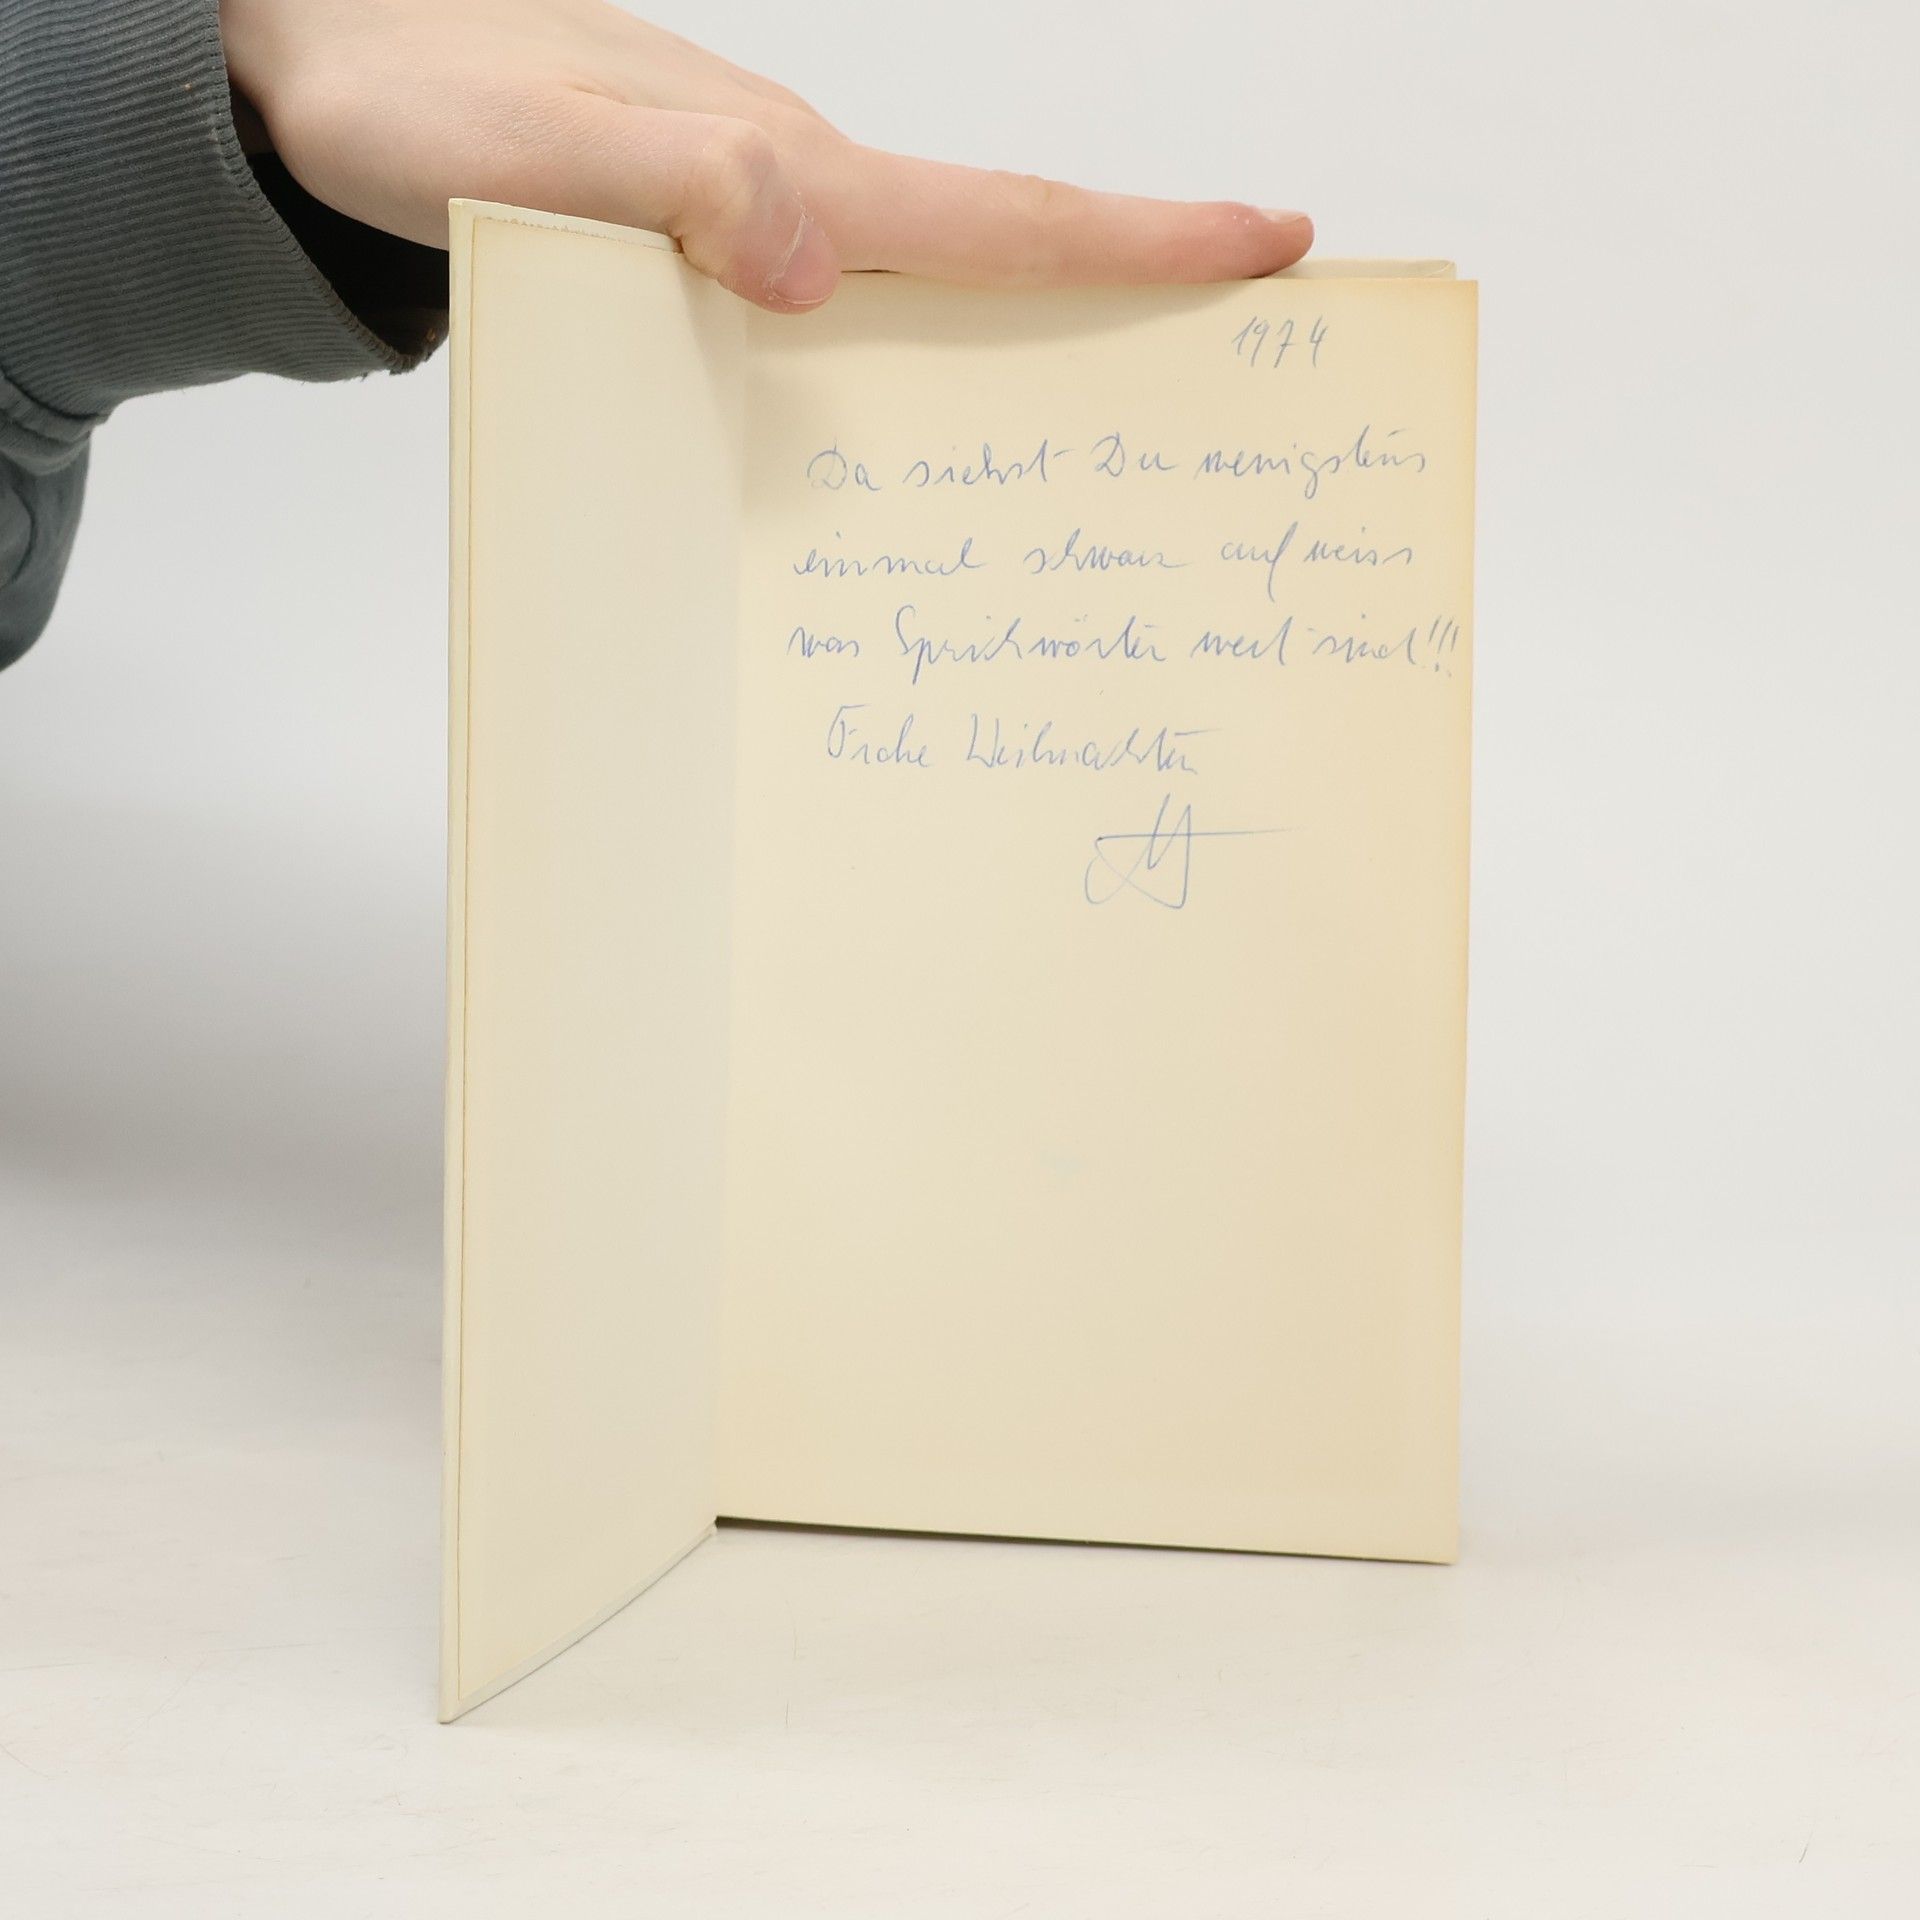 1974
Da siehst Du wenigstens
einmal schwarz auf weiss
was Sprichwörter wert sind!!!
Frohe Weihnachten